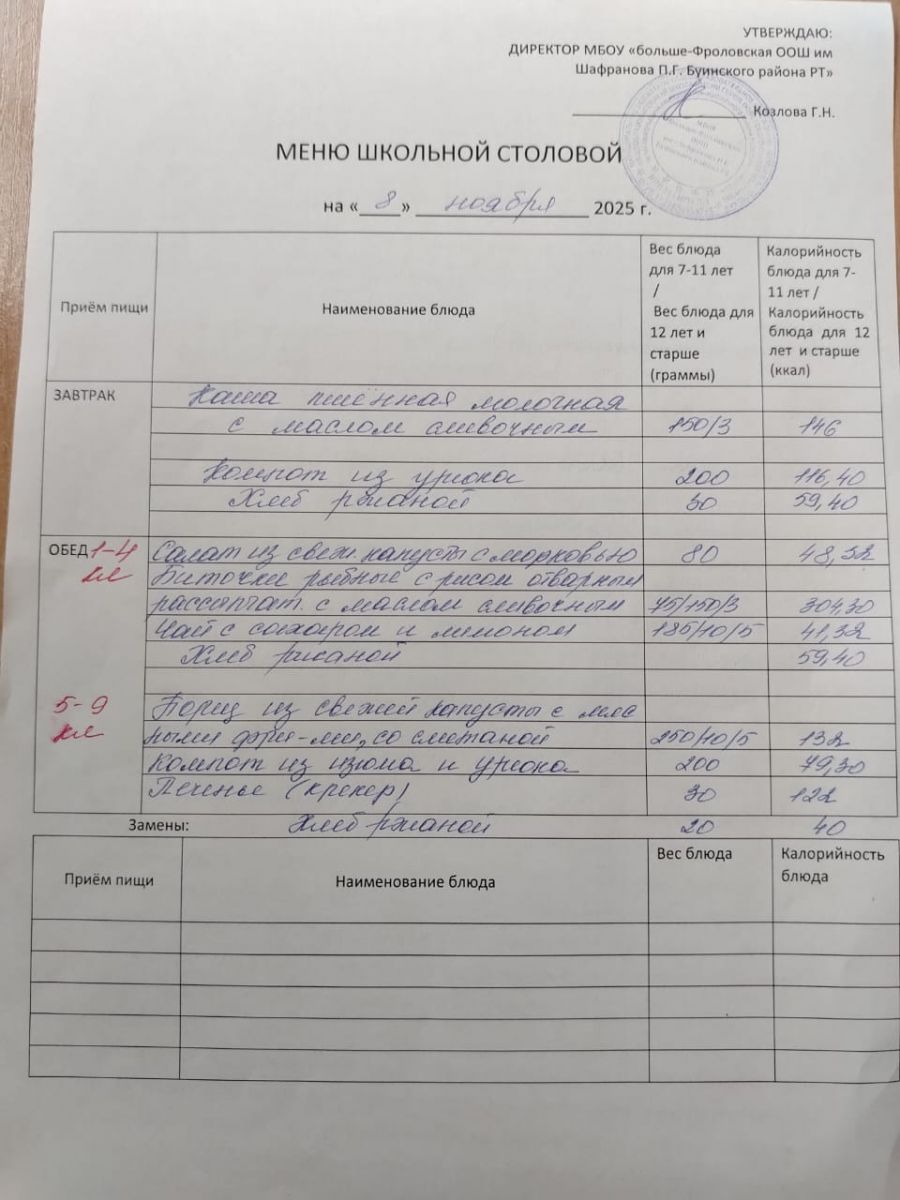 УТВЕРЖДАЮ:
ДИРЕКТОР МБОУ «больше-Фроловская ООШ им
Шафранова П.Г. Буинского района РТ»
Козлова Г.Н.
МЕНЮ ШКОЛЬНОЙ СТОЛОВОЙ
на « 8 » ноября 2025 г.
Приём пищи
Наименование блюда
Вес блюда
для 7-11 лет
/
Вес блюда для
12 лет и
старше
(граммы)
Калорийность
блюда для 7-
11 лет /
Калорийность
блюда для 12
лет и старше
(ккал)
ЗАВТРАК Каша пшённая молочная
с маслом сливочным 150/3 146
Компот из урюка 200 116,40
Хлеб ржаной 30 59,40
ОБЕД 1-4 Салат из свеж. капусты с морковью 80 48,32
кл Биточки рыбные с рисом отварным
рассыпчат. с маслом сливочным 75/150/3 304,30
Чай с сахаром и лимоном 185/10/5 41,32
Хлеб ржаной 59,40
5-9 Борщ из свежей капусты с мяс
кл ными фри-ми, со сметаной 250/10/5 132
Компот из изюма и урюка 200 79,30
Печенье (крекер) 30 122
Замены: Хлеб ржаной 20 40
Приём пищи
Наименование блюда
Вес блюда
Калорийность
блюда